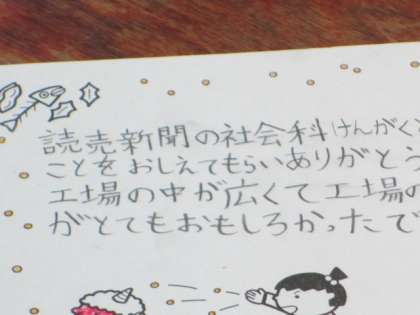 読売新聞の社会科けんがく
ことをおしえてもらいありがとう
工場の中が広くて工場の
がとてもおもしろかったで